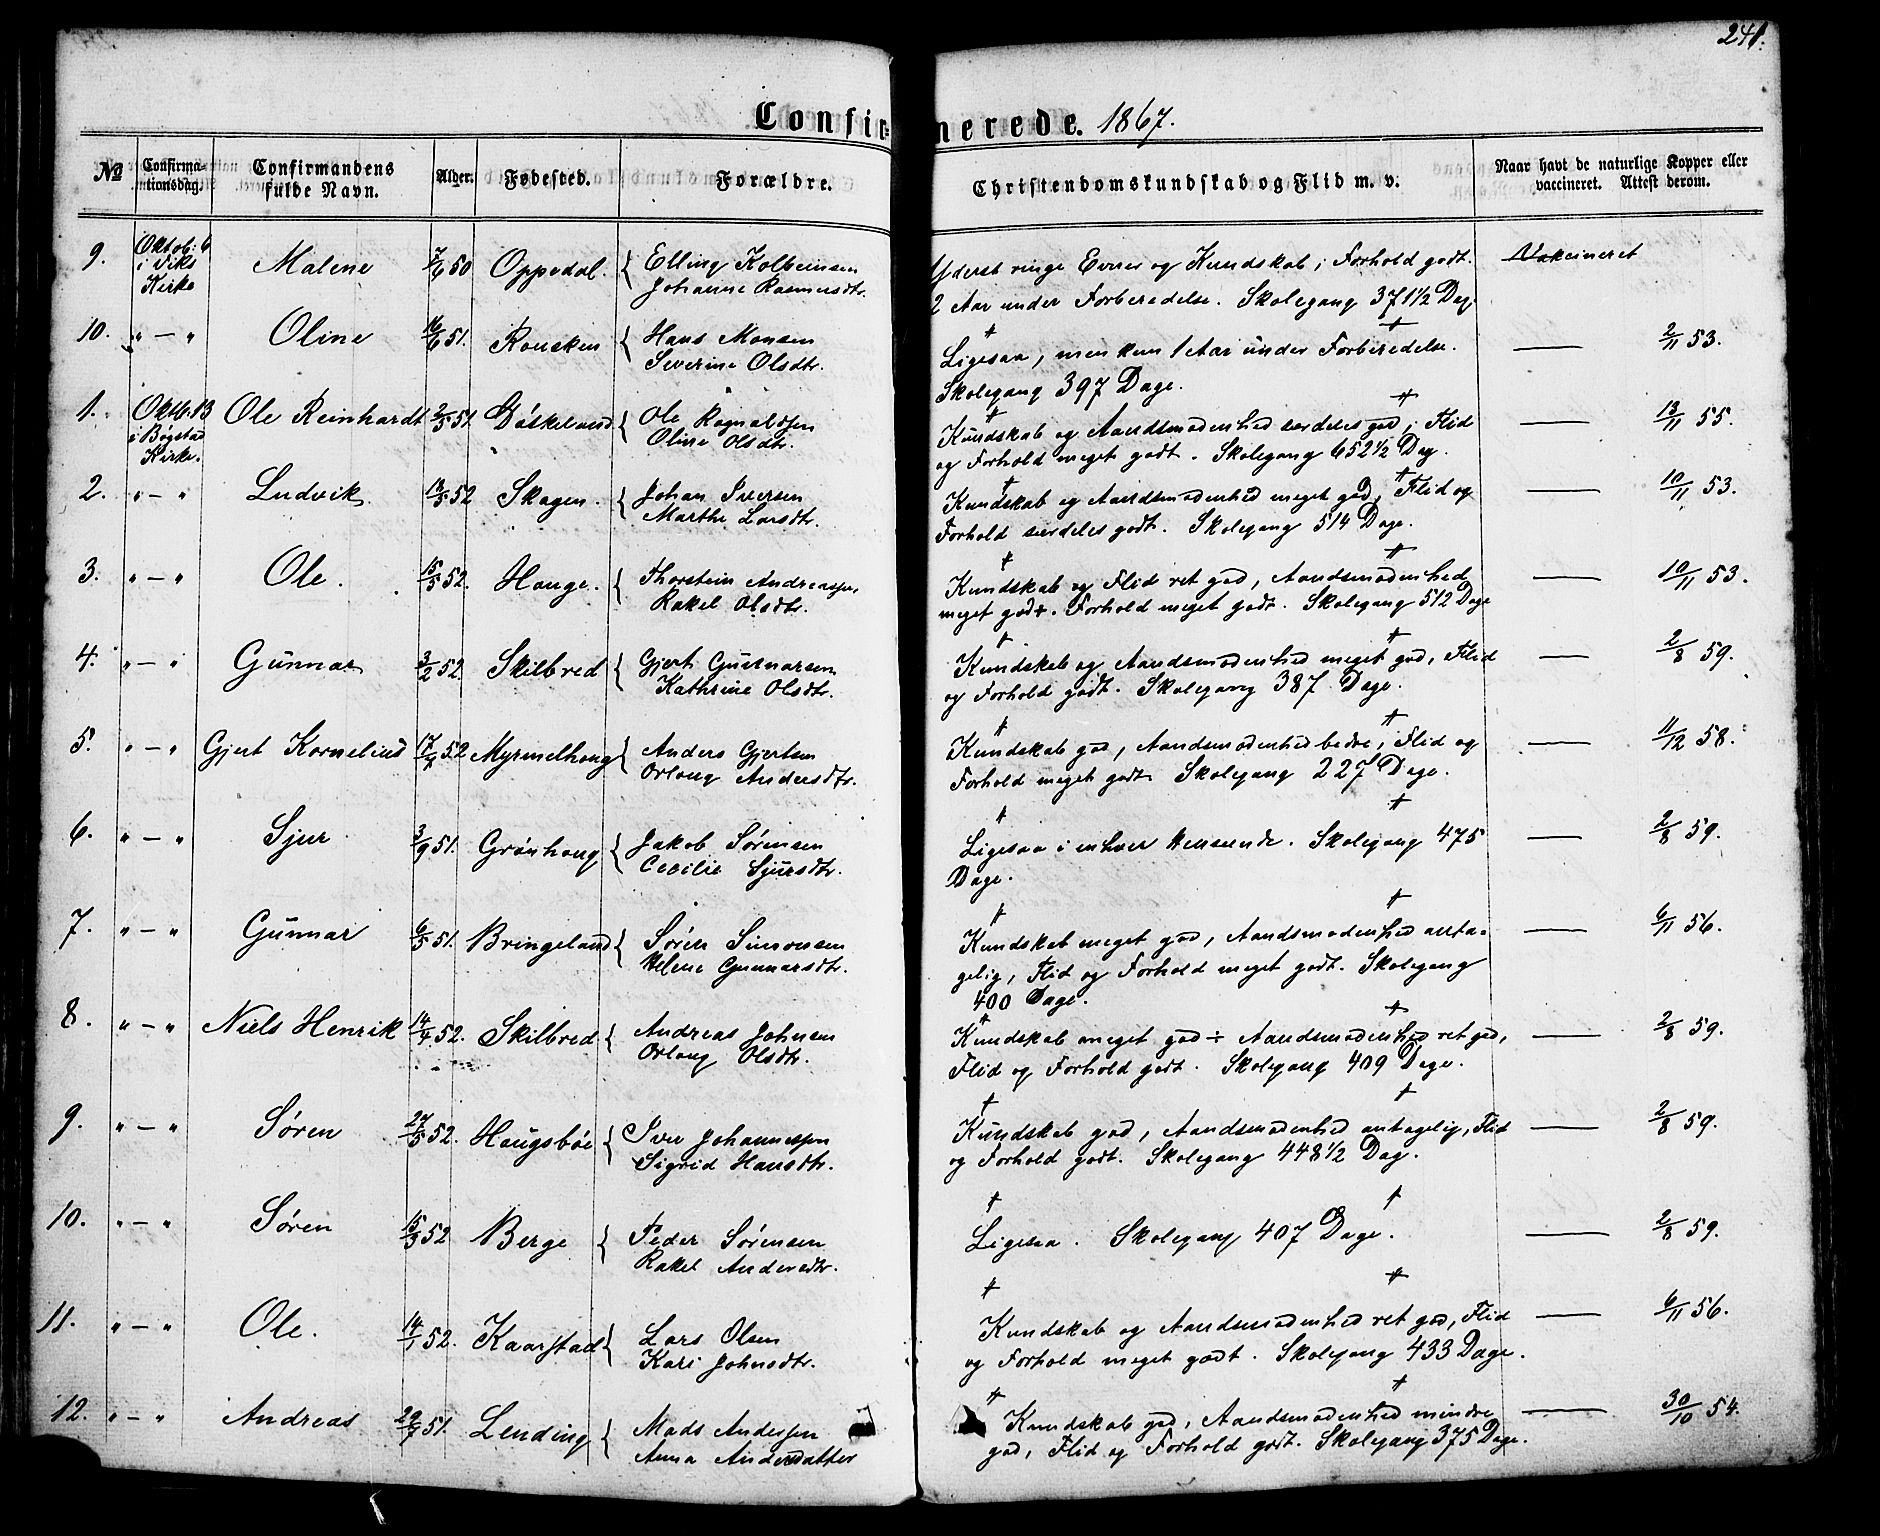 241.
Confirmerede. 1867.
No Confirmationsdag. Confirmandens fulde Navn. Alder. Fødested. Forældre. Christendomskundskab og Flid m. v. Naar havt de naturlige Kopper eller vaccineret. Attest derom.
9. Oktob: 6 i Viks Kirke Malene 7/6 50 Oppedal. { Elling Kolbeinsen Yderst ringe Evner og Kundskab; Forhold godt. Vakcineret
Johanne Rasmusdtr. 2 Aar under Forberedelse. Skolegang 371 1/2 Dag.
10. " — " Oline 16/6 51. { Hans Monsen Ligesaa, men kun 1 Aar under Forberedelse. —— 2/11 53.
Severine Olsdtr. Skolegang 397 Dage.
1. Oktb. 13 i Bygstad Kirke. Ole Reinhardt 2/5 51. { Ole Ragnaldsen Kundskab og Aandsmodenhed særdeles god; Flid —— 13/11 55.
Oline Olsdtr. og Forhold meget godt. Skolegang 652 1/2 Dag.
2. " — " Ludvik. 13/5 52 Skagen. { Johan Iversen Kundskab og Aandsmodenhed meget god; Flid og —— 10/11 53.
Marthe Larsdtr. Forhold særdeles godt. Skolegang 514 Dage.
3. " — " Ole. 15/5 52. Hauge. { Thorstein Andreassen Kundskab og Flid ret god, Aandsmodenhed —— 10/11 53.
Rakel Olsdtr. meget god +. Forhold meget godt. Skolegang 512 Dage
4. " — " Gunnar 3/2 52 Skilbred { Gjert Gunnarsen Kundskab og Aandsmodenhed meget god, Flid —— 2/8 59.
Kathrine Olsdtr. og Forhold godt. Skolegang 387 Dage.
5. " — " Gjert Kornelius 52 Myrmelhoug { Anders Gjertsen Kundskab god, Aandsmodenhed bedre, Flid og —— 11/12 58.
Orloug Andersdtr. Forhold meget godt. Skolegang 227 Dage.
6. " — " Sjur 3/9 51. Grønhoug { Jakob Sørensen Ligesaa i enhver Henseende. Skolegang 475 —— 2/8 59.
Cecilie Sjursdtr. Dage.
7. " — " Gunnar 6/5 51. Bringeland { Søren Simonsen Kundskab meget god, Aandsmodenhed anta- —— 6/11 56.
Helene Gunnarsdtr. gelig, Flid og Forhold meget godt. Skolegang
400 Dage.
8. " — " Niels Henrik 14/4 52. Skilbred { Andreas Johnsen Kundskab meget god ÷ Aandsmodenhed ret god, —— 2/8 59.
Orloug Olsdtr. Flid og Forhold godt. Skolegang 409 Dage.
9. " — " Søren 27/5 52. Haugsbøe { Iver Johannessen Kundskab god, Aandsmodenhed antagelig, Flid —— 2/8 59.
Sigrid Hansdtr. og Forhold godt. Skolegang 448 1/2 Dag.
10. " — " Søren 52 Berge { Peder Sørensen Ligesaa. Skolegang 407 Dage. —— 2/8 59.
Rakel Andersdtr.
11. " — " Ole. 14/1 52. Kaarstad { Lars Olsen Kundskab og Aandsmodenhed ret god, Flid —— 6/11 56.
Kari Johnsdtr. og Forhold meget godt. Skolegang 433 Dage.
12. " — " Andreas 29/7 51. Lending { Mads Andersen Kundskab god, Aandsmodenhed mindre —— 30/10 54.
Anna Andersdatter god, Flid og Forhold godt. Skolegang 375 Dage.